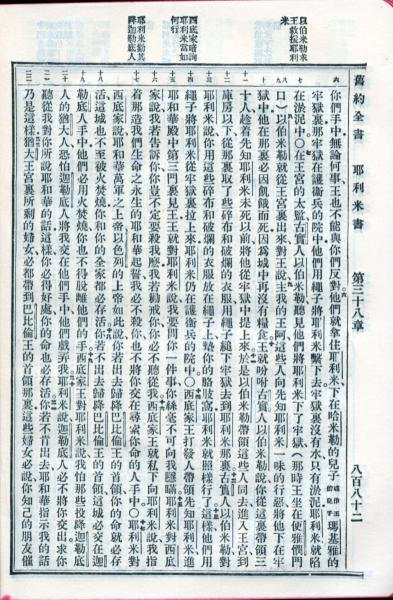 以伯米勒求
王救援耶利
米
西底家暗詢
耶利米當如
何行
耶利米勸其
降迦勒底人
舊約全書　耶利米書　第三十八章　八百八十二
你們手中無論何事王也不能與你們反對他們就拿住耶利米下在哈米勒的兒子或作王的兒子瑪基雅的
牢獄裏那牢獄在護衛兵的院中他們用繩子將耶利米繫下去牢獄裏沒有水只有淤泥耶利米就陷
在淤泥中○在王宮的太監古實人以伯米勒聽見他們將耶利米下了牢獄(那時王坐在便雅憫門
口)以伯米勒就從王宮裏出來對王說主我的王阿這些人向先知耶利米一味的行惡將他下在牢
獄中他在那裏必因飢餓而死因爲城中再沒有糧食王就吩咐古實人以伯米勒說你從這裏帶領三
十人趁着先知耶利米未死以前將他從牢獄中提上來於是以伯米勒帶領這些人同去進入王宮到
庫房以下從那裏取了些碎布和破爛的衣服用繩子縋下牢獄去到耶利米那裏古實人以伯米勒對
耶利米說你用這些碎布和破爛的衣服放在繩子上墊你的胳肢窩耶利米就照樣行了這樣他們用
繩子將耶利米從牢獄裏拉上來耶利米仍在護衛兵的院中○西底家王打發人帶領先知耶利米進
耶和華殿中第三門裏見王王就對耶利米說我要問你一件事你絲毫不可向我隱瞞耶利米對西底
家說我若告訴你你豈不定要殺我麼我若勸戒你你必不聽從我西底家王就私下向耶利米說我指
着那造我們生命之永生的耶和華起誓我必不殺你也不將你交在尋索你命的人手中○耶利米對
西底家說耶和華萬軍之上帝以色列的上帝如此說你若出去歸降巴比倫王的首領你的命就必存
活這城也不至被火焚燒你和你的全家都必存活你若不出去歸降巴比倫王的首領這城必交在迦
勒底人手中他們必用火焚燒你也不得脫離他們的手西底家王對耶利米說我怕那些投降迦勒底
人的猶大人恐怕迦勒底人將我交在他們手中他們戲弄我耶利米說迦勒底人必不將你交出求你
聽從我對你所說耶和華的話這樣你必得好處你的命也必存活你若不肯出去耶和華指示我的話
乃是這樣猶大王宮裏所剩的婦女必都帶到巴比倫王的首領那裏這些婦女必說你知己的朋友催